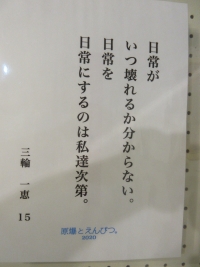 日常が
いつ壊れるか分からない。
日常を
日常にするのは私達次第。
三輪 一恵 15
原爆とえんぴつ。